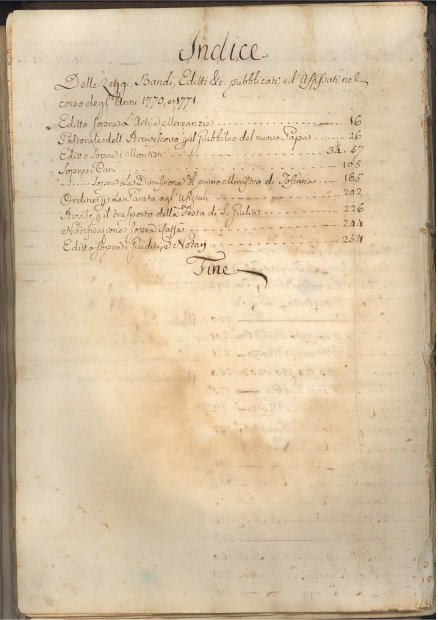 Indice
Delle Leggi Bandi, Editti &c. pubblicati, ed Affissati nel
corso degl'Anni 1770, e 1771.
Editto sopra L'Arti, e Mercanzie 16
Pastorale dell'Arcivescovo p il Giubbileo del nuovo Papa 26
Editto Sopra i Monti 34. 67
Sopra i Pani 105
Sopra La Dimissione di primo Ministro di Toscana 185
Ordine p La Parata agl'Ufiziali 202
Avviso p il trasporto della Festa di S. Giulia 226
Notificazione Sopra i Caffè 244
Editto Sopra i Giudici, e Notari 254
Fine